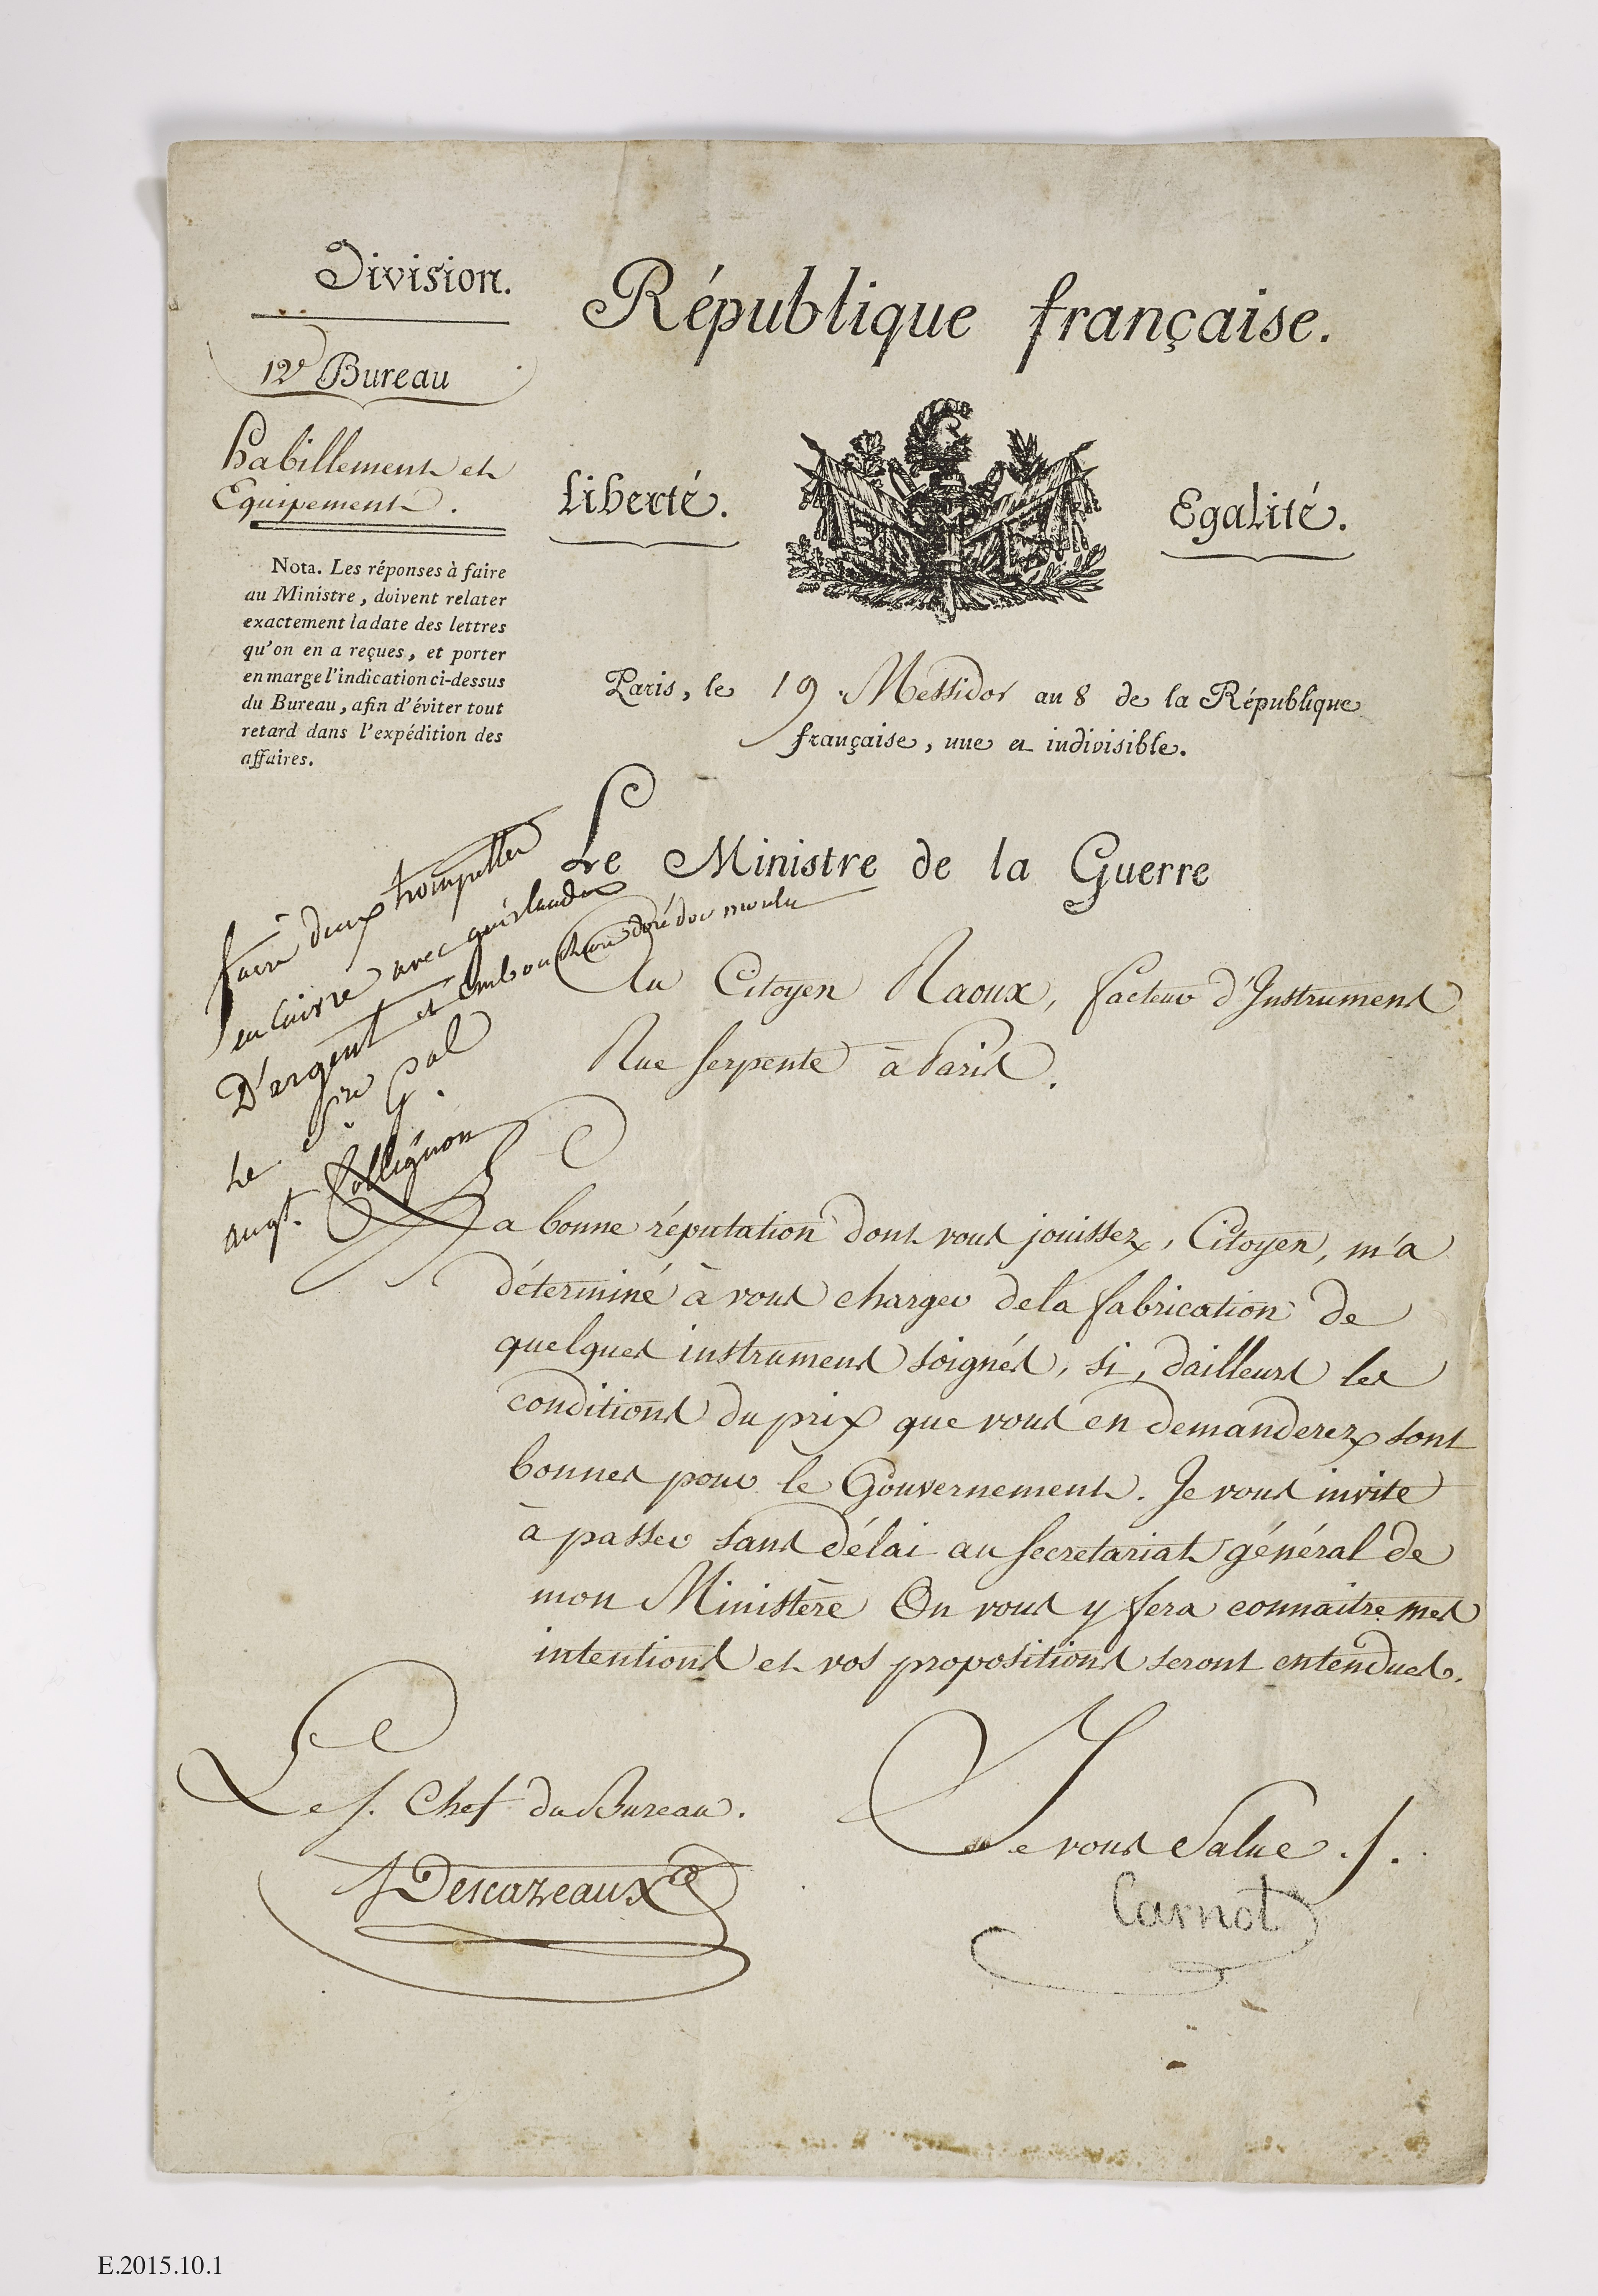 Division.
12e Bureau
habillement et
Equipement.
Nota. Les réponses à faire
au Ministre, doivent relater
exactement la date des lettres
qu'on en a reçues, et porter
en marge l'indication ci-dessus
du Bureau, afin d'éviter tout
retard dans l'expédition des
affaires.
République française.
Liberté.
Egalité.
Paris, le 19 Messidor an 8 de la République
française, une et indivisible.
Le Ministre de la Guerre
Au Citoyen Raoux, facteur d'Instrumens
Rue Serpente à Paris.
faire deux trompettes
en Cuivre avec guirlandes
D'argent et embouchure doré d'or moulu
Le Sre Gal.
Augt. Collignon
La bonne réputation dont vous jouissez, Citoyen, m'a
déterminé à vous charger de la fabrication de
quelques instrumens soignés, si, dailleurs les
conditions du prix que vous en demanderez sont
bonnes pour le Gouvernement. Je vous invite
à passer sans délai au secretariat général de
mon Ministère On vous y fera connaitre mes
intentions et vos propositions seront entendues.
Le s. Chef du Bureau.
Descazeaux
Je vous Salue.
Carnot
E.2015.10.1